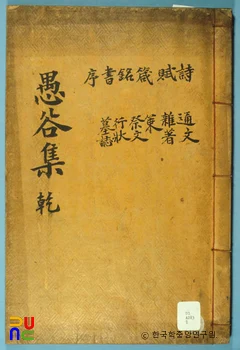 詩賦箴銘書序
通文
雜著
策
祭文
行狀
墓誌
愚谷集 乾
© 한국학중앙연구원